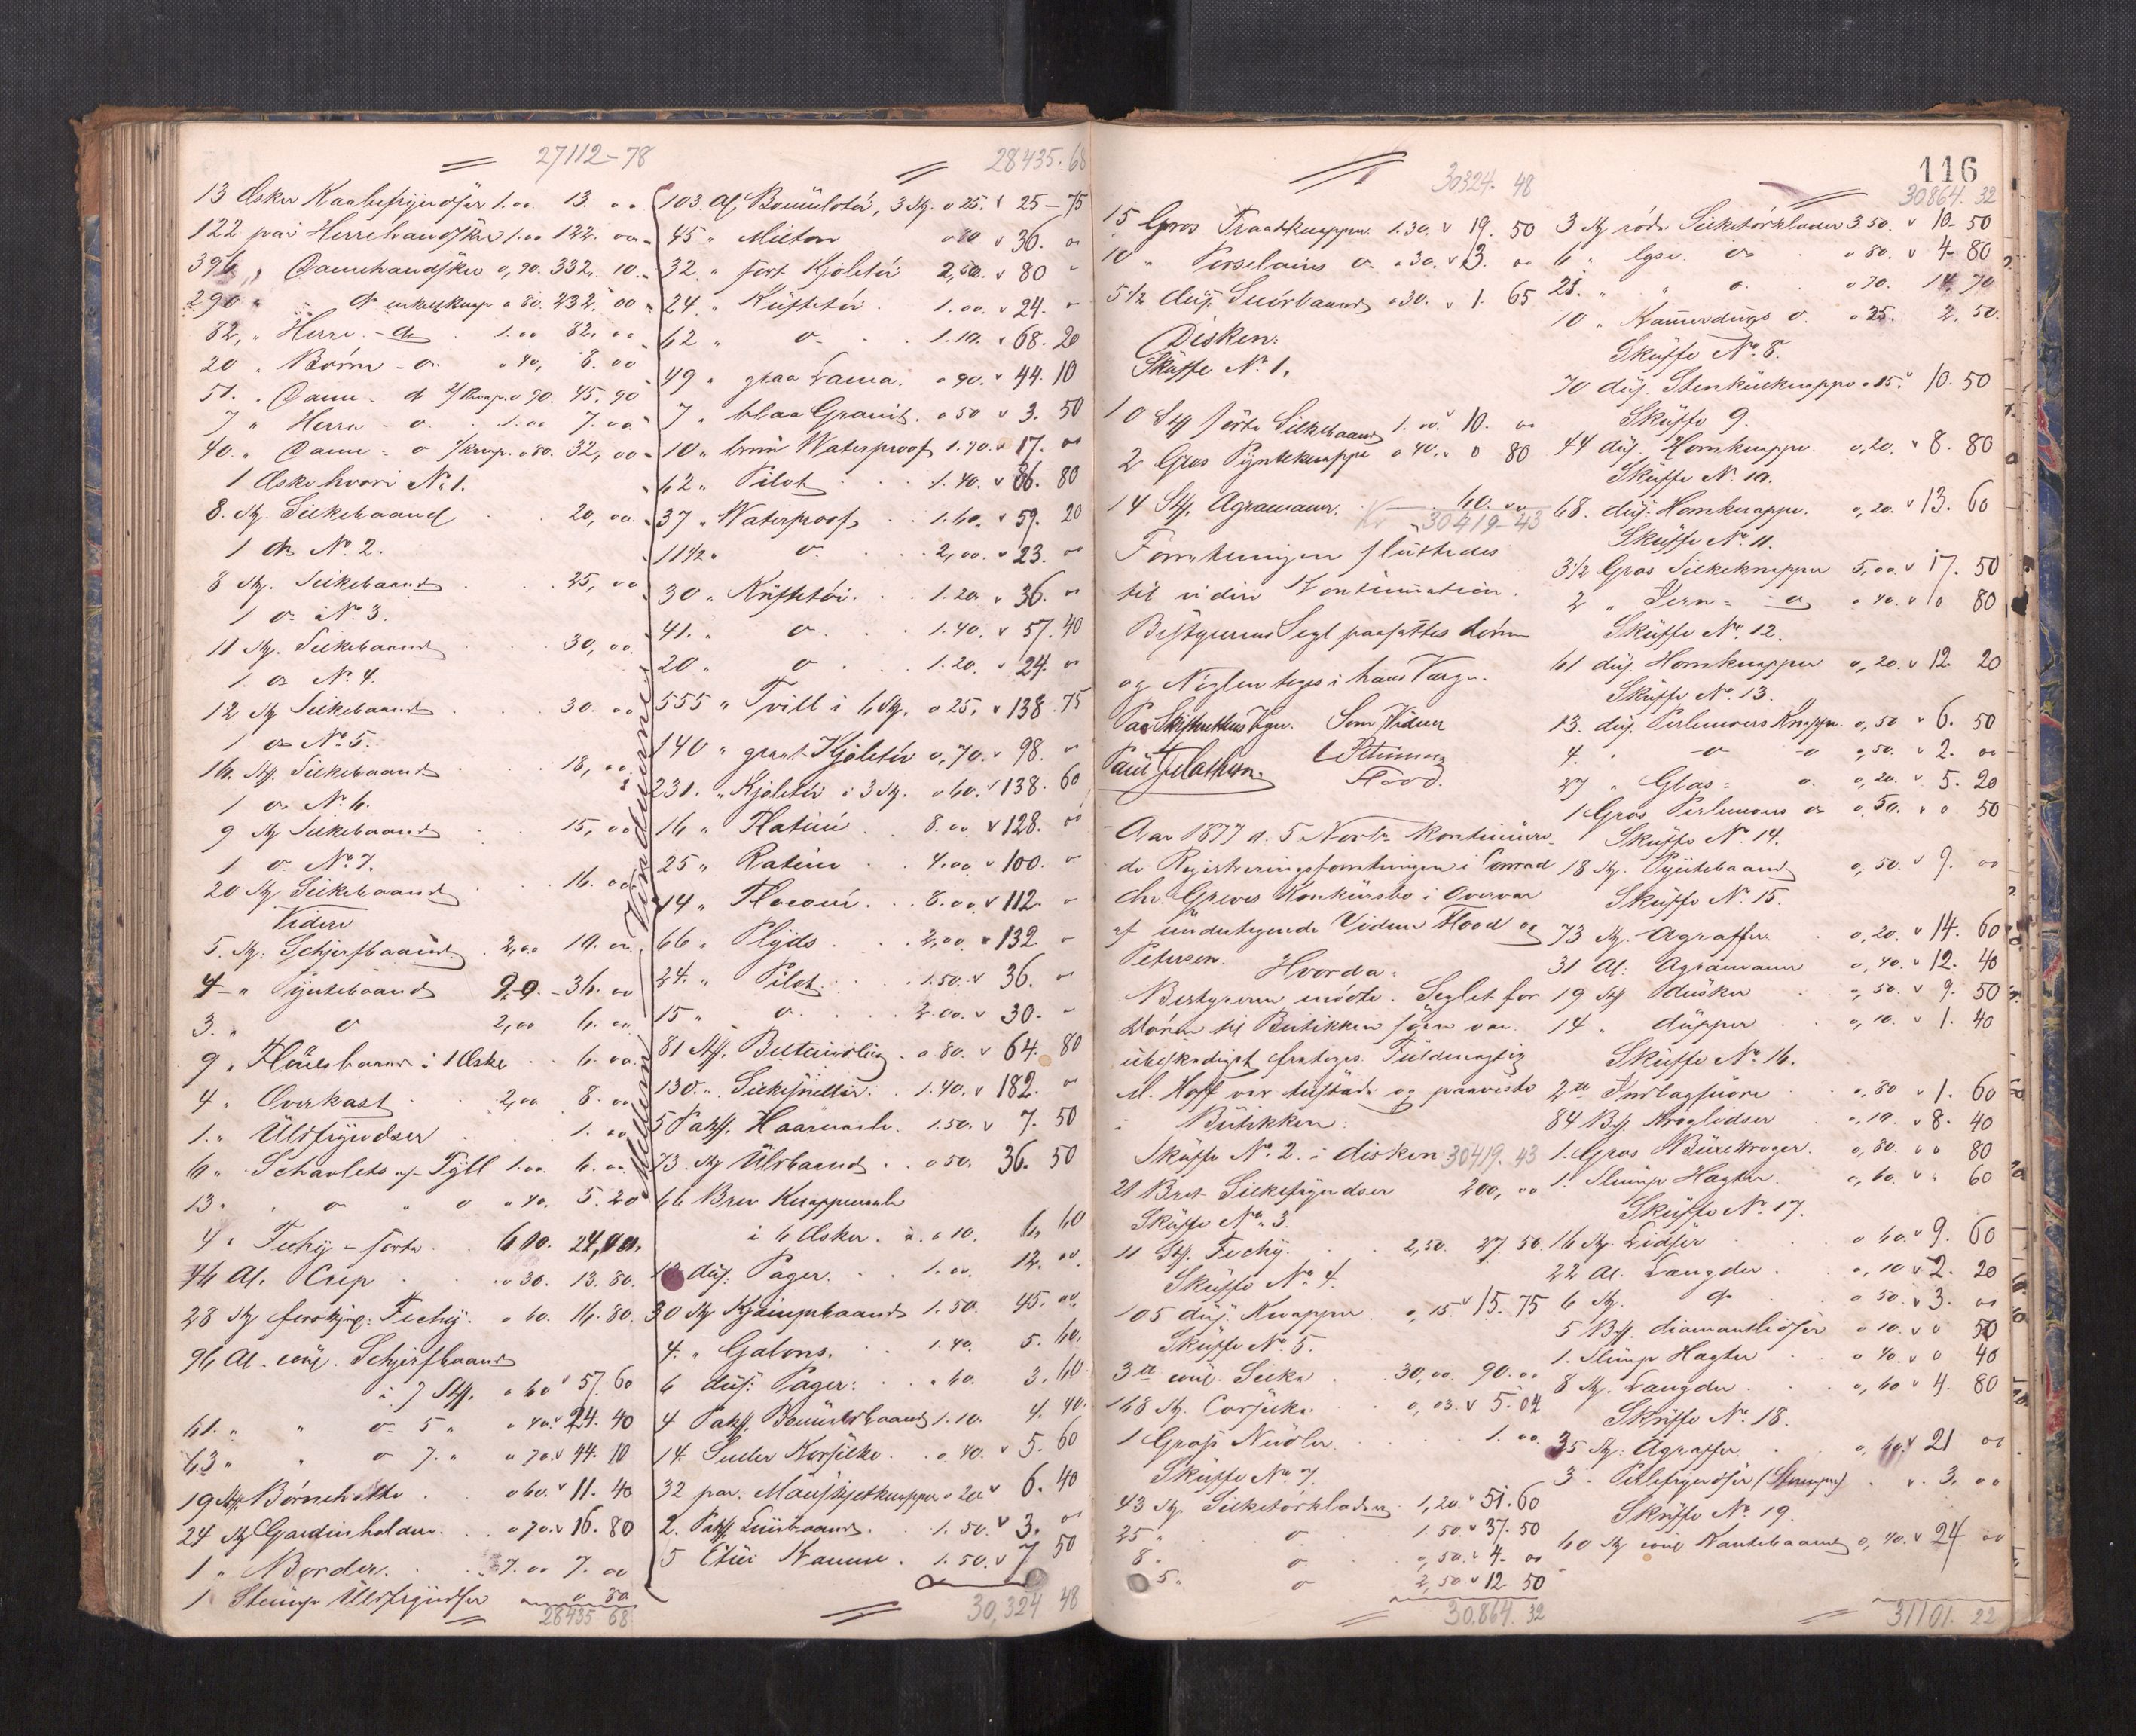 27112-78
13 Æsker Kaabefryndser 1.00. 13. 00
122 par Herrehandsker 1.00 122. 00
396 " Damehandsker 0,90. 332. 10.
290 " " do enkelknap 0 80. 232. 00
82, " Herre - do 1.00 82, 00
20 " Børne - do 0 40, 8. 00
51. " Dame - do 2/Knap. 0 90. 45. 90
7 " Herre - do 1.00 7. 00
40. " Dame - do 1/Knap. 0 80. 32, 00
1 Æske hvori No 1.
8. St. Silkebaand 20, 00.
1 do No 2.
8 St. Silkebaand 25, 00
1 do No 3.
11 St. Silkebaand 30, 00.
1 do No 4.
12 St Silkebaand 30. 00
1 do No 5.
16. St. Silkebaand 18, 00
1 do No 6.
9 St Silkebaand 15, 00
1 do No 7.
20 St Silkebaand 16. 00
Videre
5. St. Schjerfbaand 2,00 10. 00
4 - " Pyntebaand 9.0. - 36. 00
3. " do 2,00 6. 00
9 " Fløielsbaand i 1 Æske 6. 00
4 " Overkast 2,00 8. 00
1. " Uldfryndser 1. 00
6 " Schavlets af Tyll 1.00 6. 00
13. " do " do 0 40. 5. 20
4 " Fichy - sorte 6 00. 24,00.
46 Al. Crep 0 30. 13. 80.
28 St forskjel: Fichy. 0 60. 16. 80.
96 Al. coul. Schjerfbaand
i 7 St. 0 60 57. 60
61. " " do 5 " 0 40. 24. 40
63 " " do 7. " 0 70. 44. 10
19 St. Børnehatte 0 60. 11. 40
24 St Gardinholdere 0 70. 16. 80
1 " Border. 7. 00 7. 00
1 Slump Uldfryndser 0 80
28435 68
Mellem Vinduerne
28435. 68
103. Al. Bomuldstøi, 3 St. 0 25. 25-75
45 " Milton 0 80 36. 00
32. " sort Kjoletøi 2,50. 80
24 " Kaabetøi 1.00. 24.
62 " do 1.10. 68. 20
49 " graa Lama. 0 90. 44. 10
7 " blaa Granit. 0 50 3. 50
10 " brun Waterproof 1.70. 17. 00
62 " Pilot 1. 40. 86. 80
37 " Waterproof 1.60. 59. 20
11 1/2 " do 2,00. 23. 00
30 " Kaabetøi. 1.20. 36. 00
41. " do 1.40. 57. 40
20 " do 1.20. 24. 00
555 " Tvill i 6 St. 0 25. 138. 75
140 " graat Kjoletøi 0,70. 98.
231. " Kjoletøi i 3 St. 0 60. 138. 60
16 " Flatine 8.00 128. 00
25 " Ratine 4.00 100.
14 " Floconé 8.00 112.
66 " Plyds 2,00 132.
24. " Pilot 1.50. 36.
15 " do 2.00. 30.
81 St. 0 80. 64. 80
130. " 1.40. 182.
5 Pakk. 1.50. 7. 50
73. St Uldbaand 0 50. 36. 50
66 Brev Knappenaale
i 6 Æsker. à 0 10. 6, 60
12 dus. Pager. 1.00. 12. 00
30 St Kjæmpebaand 1.50. 45. 00
4. " Galons. 1.40. 5. 60.
6 dus: Pager: 0 60. 3. 60
4 Pakk. Bomuldsbaand 1.10. 4. 40.
14. 0 40. 5. 60
32 par. Mansjetknapper 0 20 6. 40
2. Pakk 1.50. 3. 00
5 Etui Kamme. 1.50. 7 50
30,324 48
116
30324. 48
15 Gros Traadknapper 1.30. 19. 50
10 " Porselains do 0 30. 3. 00
5 1/2 dus. Snørbaand 0 30. 1. 65
Disken:
Skuffe No 1.
10 St sorte Silkebaand 1. 00 10. 00
2 Gros Pynteknappe 0 40. 0 80
14 St. Agramaner. 60. 00
Kr 30419-43
Forretningen sluttedes
til videre Kontinuation.
Bestyrerens Segl paasattes døren
og Nøglen toges i hans Værge.
Paa Skifterettens Vegne. Som Vidner
Petersen
Flood.
Aar 1877 d. 5 Novbr kontinuere-
de Registreringsforretningen i Conrad
Chr. Greves Konkursbo i Overvær
af undertegnede Vidner Flood og
Petersen. Hvorda:
Bestyreren mødte. Seglet for
døren til Butikken som var
ubeskadiget fratoges. Fuldmægtig
M. Hoff var tilstede og paaviste
i Butikken:
Skuffe No 2. i disken 30419. 43
21 Bret Silkefryndser 200, 00
Skuffe No 3.
11 St. Fichy. 2,50. 27. 50.
Skuffe No 4.
105 dus. Knapper 0, 15 15. 75
Skuffe No 5.
3 coul. Silke 30,00 90. 00
168 St. Corsilke. 0, 03. 5. 04
1 Gross Naaler. 1. 00.
Skuffe No 7.
43 St. Silketørklæder 1,20. 51. 60
25 " do 1.50. 37. 50
8. " do 0, 50. 4. 00
5. " do 2,50 12. 50
30,864. 32
30864. 32
3 St røde Silketørklæder 3.50. 10. 50
6 " do 0 80. 4. 80
21. " " do 0 70. 14. 70
10 " Kammerdugs do. 0 25. 2. 50.
Skuffe No 8.
70 dus. Stenkulknappe 0 15. 10. 50
Skuffe 9.
44 dus. Hornknappe. 0,20. 8. 80
Skuffe No. 10.
68. dus. Hornknappe. 0, 20. 13. 60
Skuffe No. 11.
3 1/2 Gros Silkeknapper 5,00. 17. 50
2 " Jern= do 0 40. 0 80
Skuffe No. 12.
61 dus. Hornknapper 0, 20. 12. 20
Skuffe No. 13.
13. dus. Perlemors Knapper. 0, 50 6. 50
4. " do do 0,50. 2. 00
27 " Glas= do. 0, 20. 5. 20
1 Gros Perlemors do 0, 50. 0 50
Skuffe No. 14.
18 St. Pyntebaand 0, 50. 9. 00
Skuffe No. 15.
73 St. Agraffer 0, 20. 14. 60
31 Al: Agramaner 0, 40. 12. 40
19 St duske 0, 50. 9. 50
14 " dupper 0, 10. 1. 40
Skuffe No. 16.
2 Indlagsnore 0, 80 1. 60
84 Bf. 0, 10. 8. 40
1. Gros 0, 80. 0 80
1. Slump Hagter. 0, 60. 60
Skuffe No. 17.
16 St. Lidser 0 60. 9. 60
22 Al. Langder 0, 10 2. 20
6 St. do 0 50. 3. 00
5 Bf. diamantlidser 0 10. 0 50
1. Slump Hagter 0 40. 0 40
8 St. Langder 0, 60 4. 80
Skuffe No. 18.
35 St. Agraffer. 0, 60. 21 00
3. Perlefryndser (Stumper) 3, 00
Skuffe No. 19.
60 St coul Kantebaand 0, 40. 24 00
31101. 22